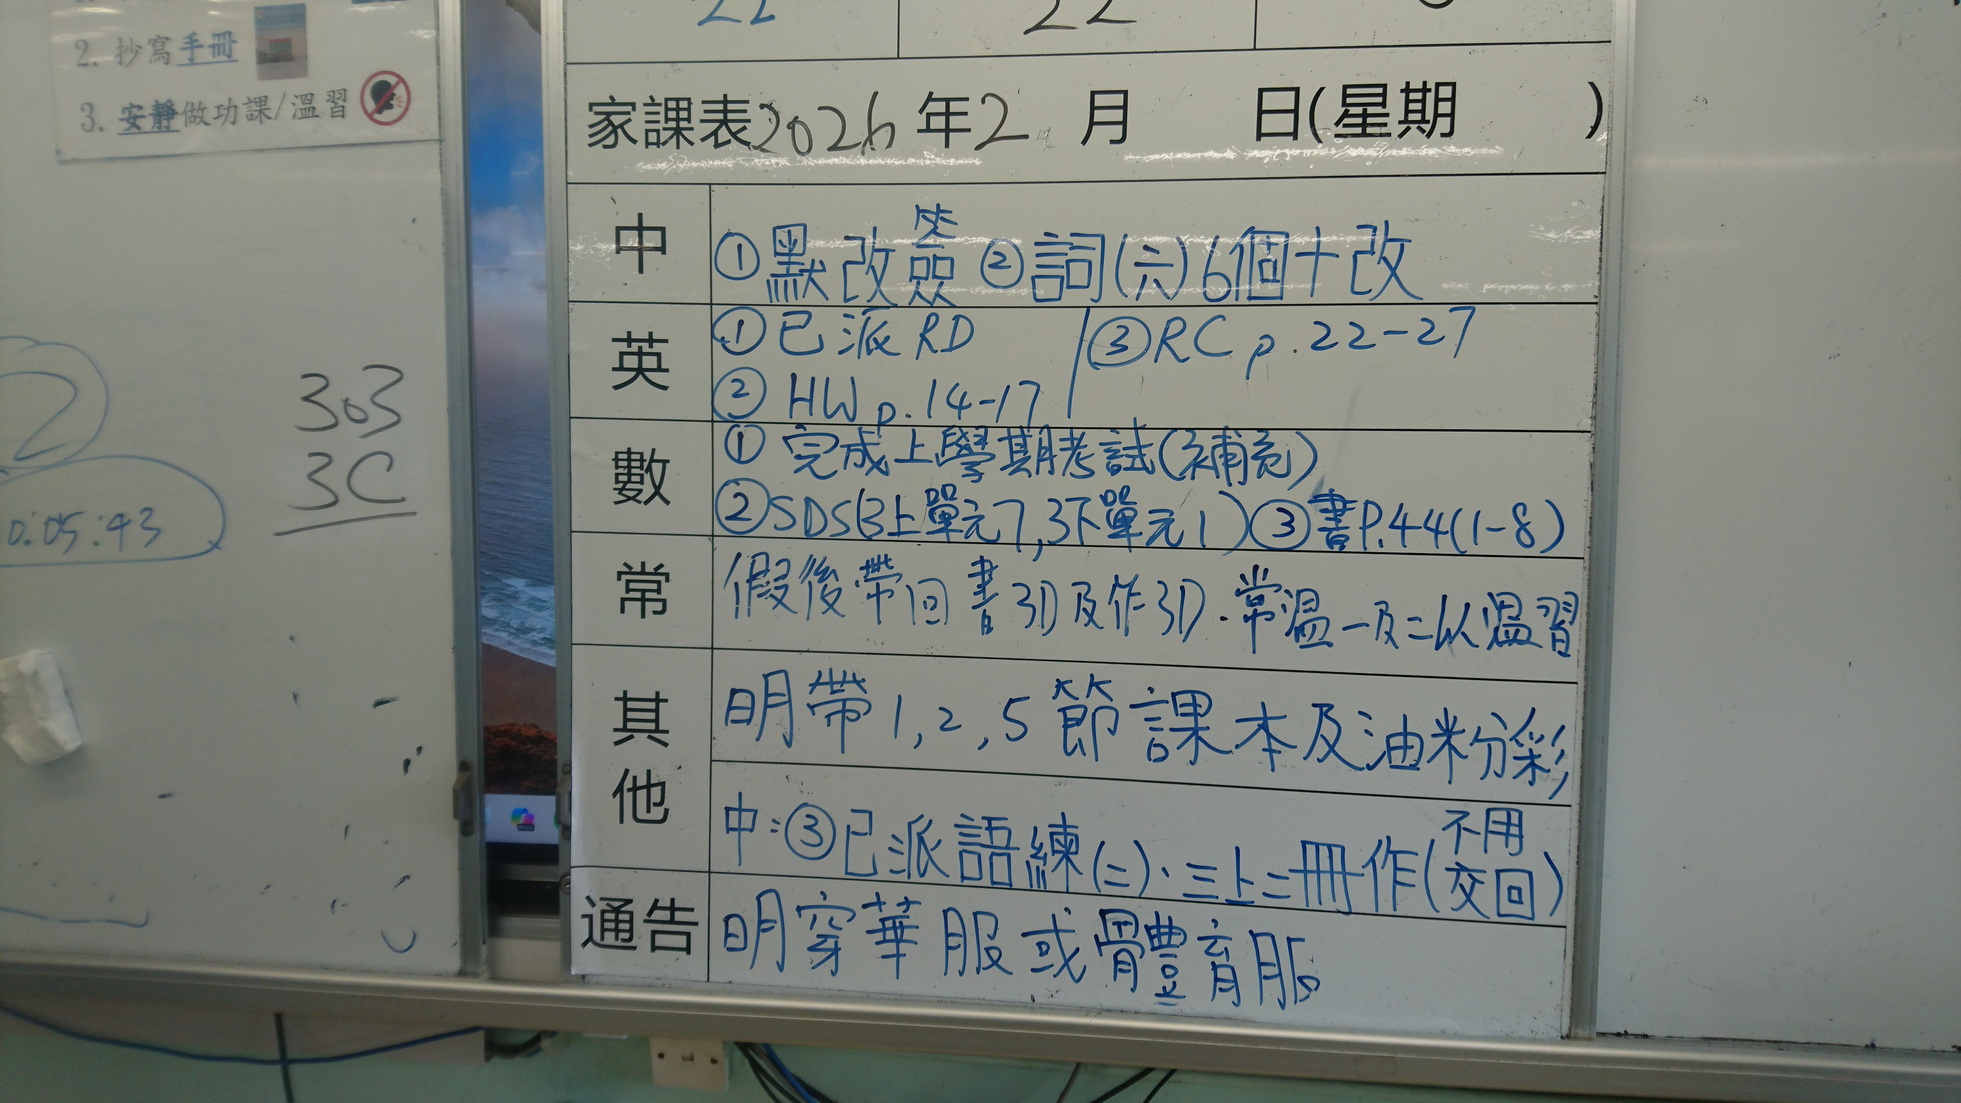 2. 抄寫手冊
3. 安靜做功課/溫習
303
3C
2
0:05:43
22
22
家課表2026年2月 日(星期 )
中
①默改簽②詞(六)6個+改
英
①已派RD
②HW p.14-17
③RC p.22-27
數
①完成上學期考試(補充)
②SDS(3上單元7,3下單元1)③書P.44(1-8)
常
假後帶回書3D及作3D.常溫一及二以溫習
其他
明帶1,2,5節課本及油粉彩
中:③已派語練(二)、三上二冊作(不用交回)
通告
明穿華服或體育服